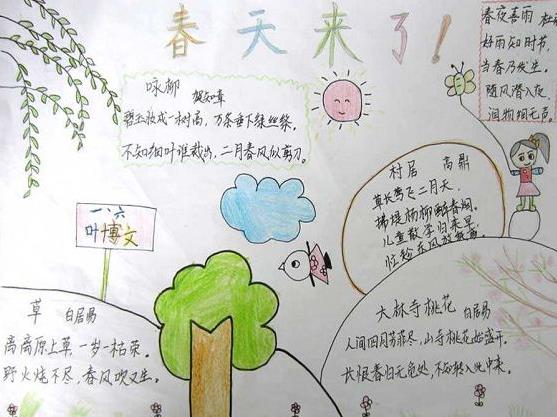 春天来了！
春夜喜雨 杜
好雨知时节
当春乃发生。
随风潜入夜
润物细无声。
咏柳
贺知章
碧玉妆成一树高，万条垂下绿丝绦。
不知细叶谁裁出，二月春风似剪刀。
村居 高鼎
草长莺飞二月天，
拂堤杨柳醉春烟。
儿童散学归来早，
忙趁东风放纸鸢。
一、六
叶博文
草 白居易
离离原上草，一岁一枯荣。
野火烧不尽，春风吹又生。
大林寺桃花 白居易
人间四月芳菲尽，山寺桃花始盛开。
长恨春归无觅处，不知转入此中来。